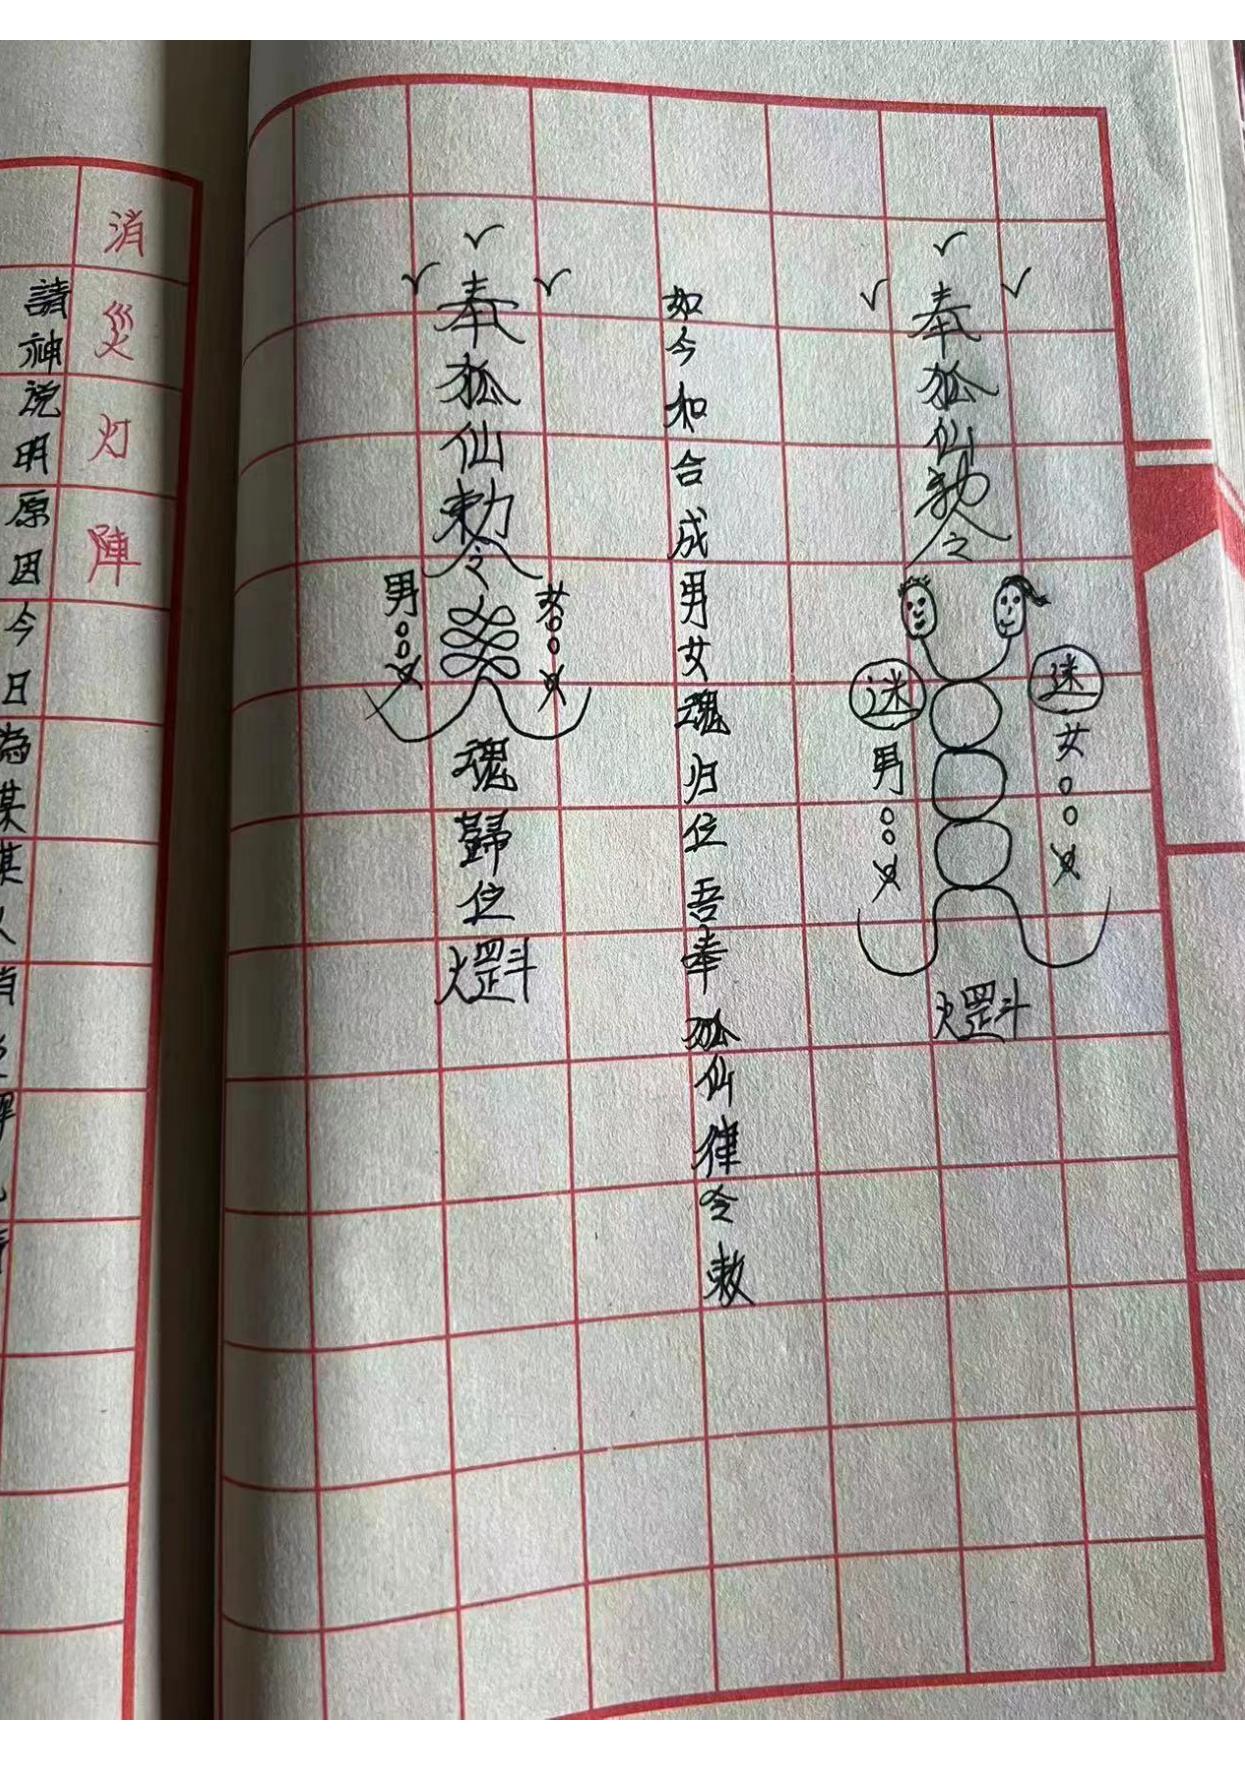 奉狐仙勅令
迷
女
迷
男
罡斗
如今和合成男女魂归位吾奉狐仙律令敕
奉狐仙勅令
女
男
魂歸位
罡斗
消災灯陣
請神说明原因今日為某某人消